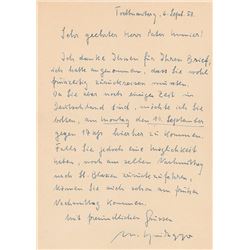 Todtnauberg, 6. Sept. 53.
Sehr geehrter Herr Pater Munier!
Ich danke Ihnen für Ihren Brief,
ich hatte angenommen, dass Sie wohl
frühzeitig zurückreisen mussten.
Da Sie aber noch einige Zeit in
Deutschland sind, möchte ich Sie
bitten, am Montag den 14. September
gegen 17 Uhr hierher zu kommen.
Falls Sie jedoch eine Möglichkeit
haben, noch am selben Nachmittag
nach St. Blasien zurückzufahren,
können Sie mich schon am frühen
Nachmittag kommen.
Mit freundlichen Grüssen
M. Heidegger